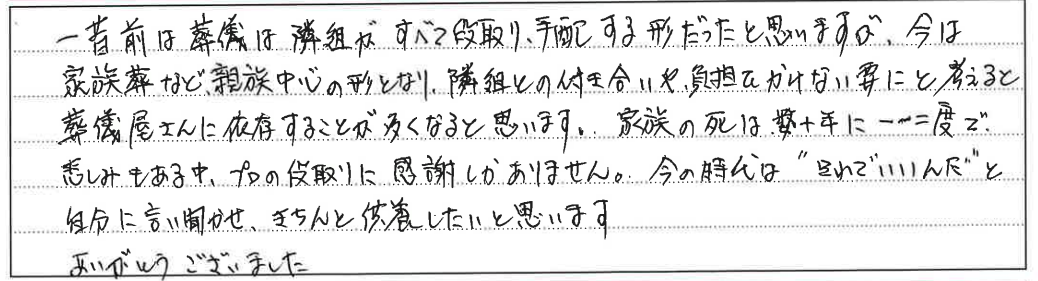 一昔前は葬儀は隣組がすべて段取り、手配する形だったと思いますが、今は
家族葬など、親族中心の形となり、隣組との付き合いや、負担をかけない要にと考えると
葬儀屋さんに依存することが多くなると思います。家族の死は数十年に一〜二度で
悲しみもある中、プロの段取りに感謝しかありません。今の時代は"それでいいんだ"と
自分に言い聞かせ、きちんと供養したいと思います
ありがとうございました